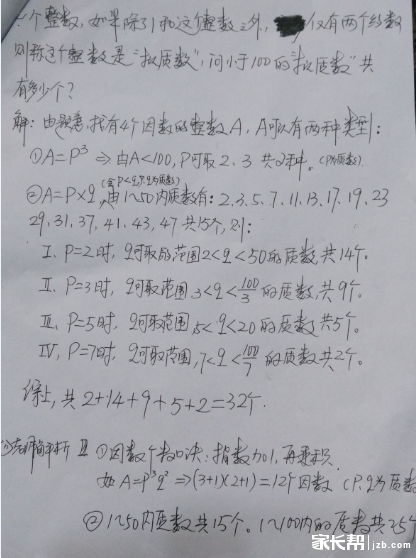 一个整数,如果除1和这个整数之外,仅有两个约数
则称这个整数是"拟质数",问小于100的"拟质数"共
有多少个?
解:由题意,找有4个因数的整数A,A可以有两种类型:
①A=P³⇒由A<100,P可取2、3共2种。(P为质数)
②A=P×q,(令P<q,P.q为质数)由1~50内质数有:2,3,5,7,11,13,17,19,23
29,31,37,41,43,47共15个,则:
I、P=2时,q可取的范围2<q<50的质数,共14个。
II、P=3时,q可取范围,3<q<100/3的质数,共9个。
III、P=5时,q可取范围,5<q<20的质数共5个。
IV,P=7时,q可取范围,7<q<100/7的质数共2个。
综上,共2+14+9+5+2=32个.
老师简评析 ①因数个数口诀:指数加1,再乘积.
如A=P³q²⇒(3+1)(2+1)=12个因数(P、q为质数
②1~50内质数共15个。1~100内的质数共25个
家长帮 jzb.com